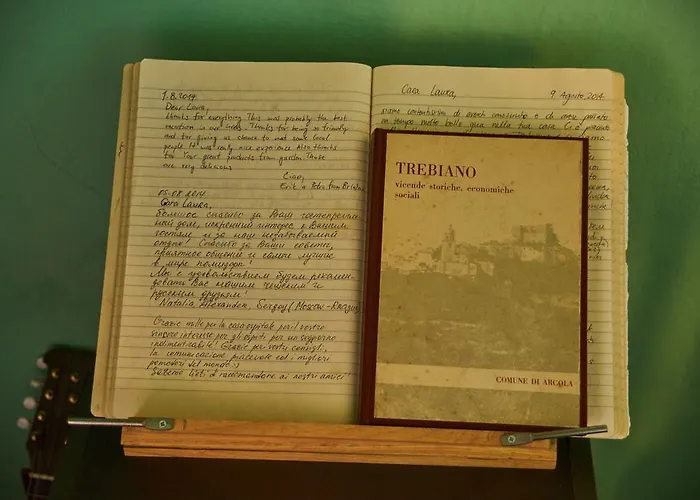 1.8.2014
Dear Laura,
thanks for everything. This was probably the best
vacation in our lives. Thanks for being so friendly
and for giving us chance to met some local
people. It was really nice experience. Also thanks
for Your great products from garden. Those
are very delicious.
Ciao,
Erik + Peter from
05.08.2014
Cara Laura,
Большое спасибо за Ваш гостеприим-
ный дом, искренний интерес к Вашим
гостям и за наш незабываемый
отдых! Спасибо за Ваши советы,
приятное общение и самые лучшие
в мире помидоры!
Мы с удовольствием будем рекомен-
довать Вас нашим чешским и
русским друзьям!
Natalia, Alexander, Sergey (Moscow-
Grazie mille per la casa ospitale, per il vostro
sincero interesse per gli ospiti, per un soggiorno
indimenticabile! Grazie per vostri consigli,
la comunicazione piacevole ed i migliori
pomodori del mondo :)
Saremo lieti a raccomandare ai nostri amici!
Cara Laura,
9 Agosto 2014
siamo contentissimi di averti conosciuto e di aver passato
un tempo molto bello qua nella tua casa.
TREBIANO
vicende storiche, economiche
sociali
COMUNE DI ARCOLA